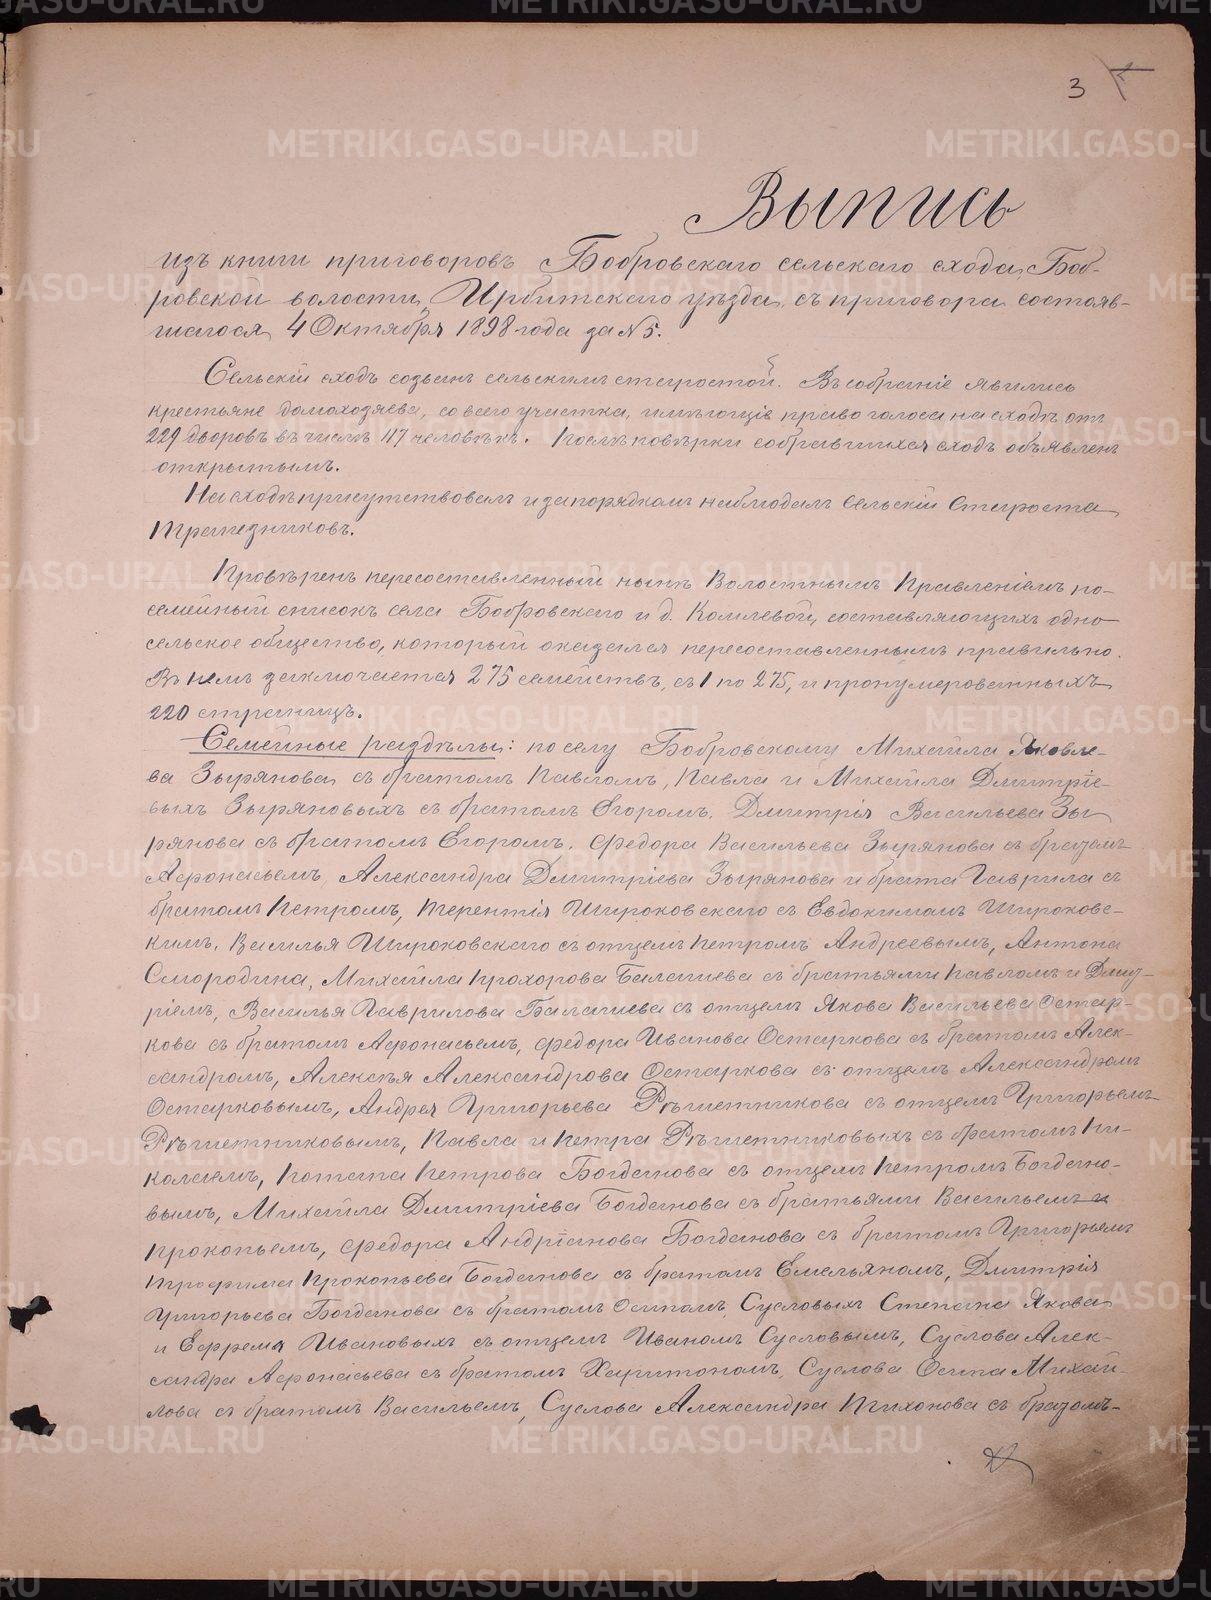 3
Выпись
изъ книги приговоровъ Бобровскаго сельскаго схода, Боб-
ровской волости, Ирбитскаго уѣзда, съ приговора состояв-
шагося 4 Октября 1898 года за № 5.
Сельскій сходъ созванъ сельскимъ старостой. Въ собраніе явились
крестьяне домохозяева, со всего участка, имѣющіе право голоса на сходѣ отъ
229 дворовъ въ числѣ 117 человѣкъ. Послѣ повѣрки собравшихся сходъ объявленъ
открытымъ.
На сходѣ присутствовалъ и за порядкомъ наблюдалъ Сельскій Староста
Трапезниковъ.
Провѣренъ пересоставленный нынѣ Волостнымъ Правленіемъ по-
семейный списокъ села Бобровскаго и д. Колмевой, составляющихъ одно
сельское общество, который оказался пересоставленнымъ правильно.
Въ немъ заключается 275 семействъ, съ 1 по 275, и пронумерованныхъ
220 страницъ.
Семейные раздѣлы: по селу Бобровскому Михаила Яковле-
ва Зырянова съ братомъ Павломъ, Павла и Михаила Дмитріе-
выхъ Зыряновыхъ съ братомъ Егоромъ. Дмитрія Васильева Зы
рянова съ братомъ Егоромъ. Федора Васильева Зырянова съ братомъ
Афонасьемъ, Александра Дмитріева Зырянова и брата Гаврила съ
братомъ Петромъ, Терентія Широковскаго съ Евдокимомъ Широковс-
кимъ. Василья Широковскаго съ отцемъ Петромъ Андреевымъ, Антона
Смородина, Михаила Прохорова Балашева съ братьями Павломъ и Дмит-
ріемъ, Василья Гаврилова Балашева съ отцемъ Якова Васильева Остар-
кова съ братомъ Афонасьемъ, Федора Иванова Остаркова съ братомъ Алек-
сандромъ, Алексѣя Александрова Остаркова съ отцемъ Александромъ
Остарковымъ, Андрея Григорьева Рѣшетникова съ отцемъ Григорьемъ
Рѣшетниковымъ, Павла и Петра Рѣшетниковыхъ съ братомъ Ни-
колаемъ, Потапа Петрова Богданова съ отцемъ Петромъ Богдано-
вымъ, Михаила Дмитріева Богданова съ братьями Васильемъ и
Прокопьемъ, Федора Андріанова Богданова съ братомъ Григорьемъ
Трофима Прокопьева Богданова съ братомъ Емельяномъ, Дмитрія
Григорьева Богданова съ братомъ Осипомъ, Сусловыхъ Степана Якова
и Ефрема Ивановыхъ съ отцемъ Иваномъ Сусловымъ, Суслова Алек-
сандра Афонасьева съ братомъ Харитономъ, Суслова Осипа Михай-
лова съ братомъ Васильемъ, Суслова Александра Тихонова съ братомъ-
METRIKI.GASO-URAL.RU